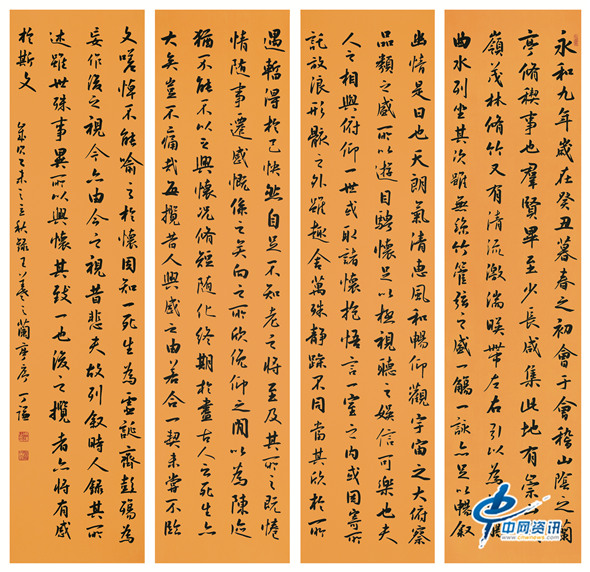 永和九年歲在癸丑暮春之初會于會稽山陰之蘭
亭脩稧事也羣賢畢至少長咸集此地有崇
嶺茂林脩竹又有清流激湍暎帶左右引以為觴
曲水列坐其次雖無絲竹管弦之盛一觴一詠亦足以暢敘
幽情是日也天朗氣清惠風和暢仰觀宇宙之大俯察
品類之盛所以遊目騁懷足以極視聽之娛信可樂也夫
人之相與俯仰一世或取諸懷抱悟言一室之內或因寄所
託放浪形骸之外雖趣舍萬殊靜躁不同當其欣於所
遇暫得於己快然自足不知老之將至及其所之既惓
情隨事遷感慨係之矣向之所欣俛仰之閒以為陳迹
猶不能不以之興懷況脩短隨化終期於盡古人云死生亦
大矣豈不痛哉每攬昔人興感之由若合一契未嘗不臨
文嗟悼不能喻之於懷固知一死生為虛誕齊彭殤為
妄作後之視今亦由今之視昔悲夫故列敘時人錄其所
述雖世殊事異所以興懷其致一也後之攬者亦將有感
於斯文
歲次乙未之立秋錄王羲之蘭亭序 丁謙
中网资讯
www.cnwnews.com